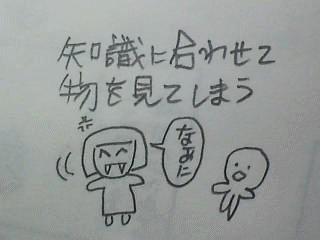 知識に合わせて
物を見てしまう
なあに